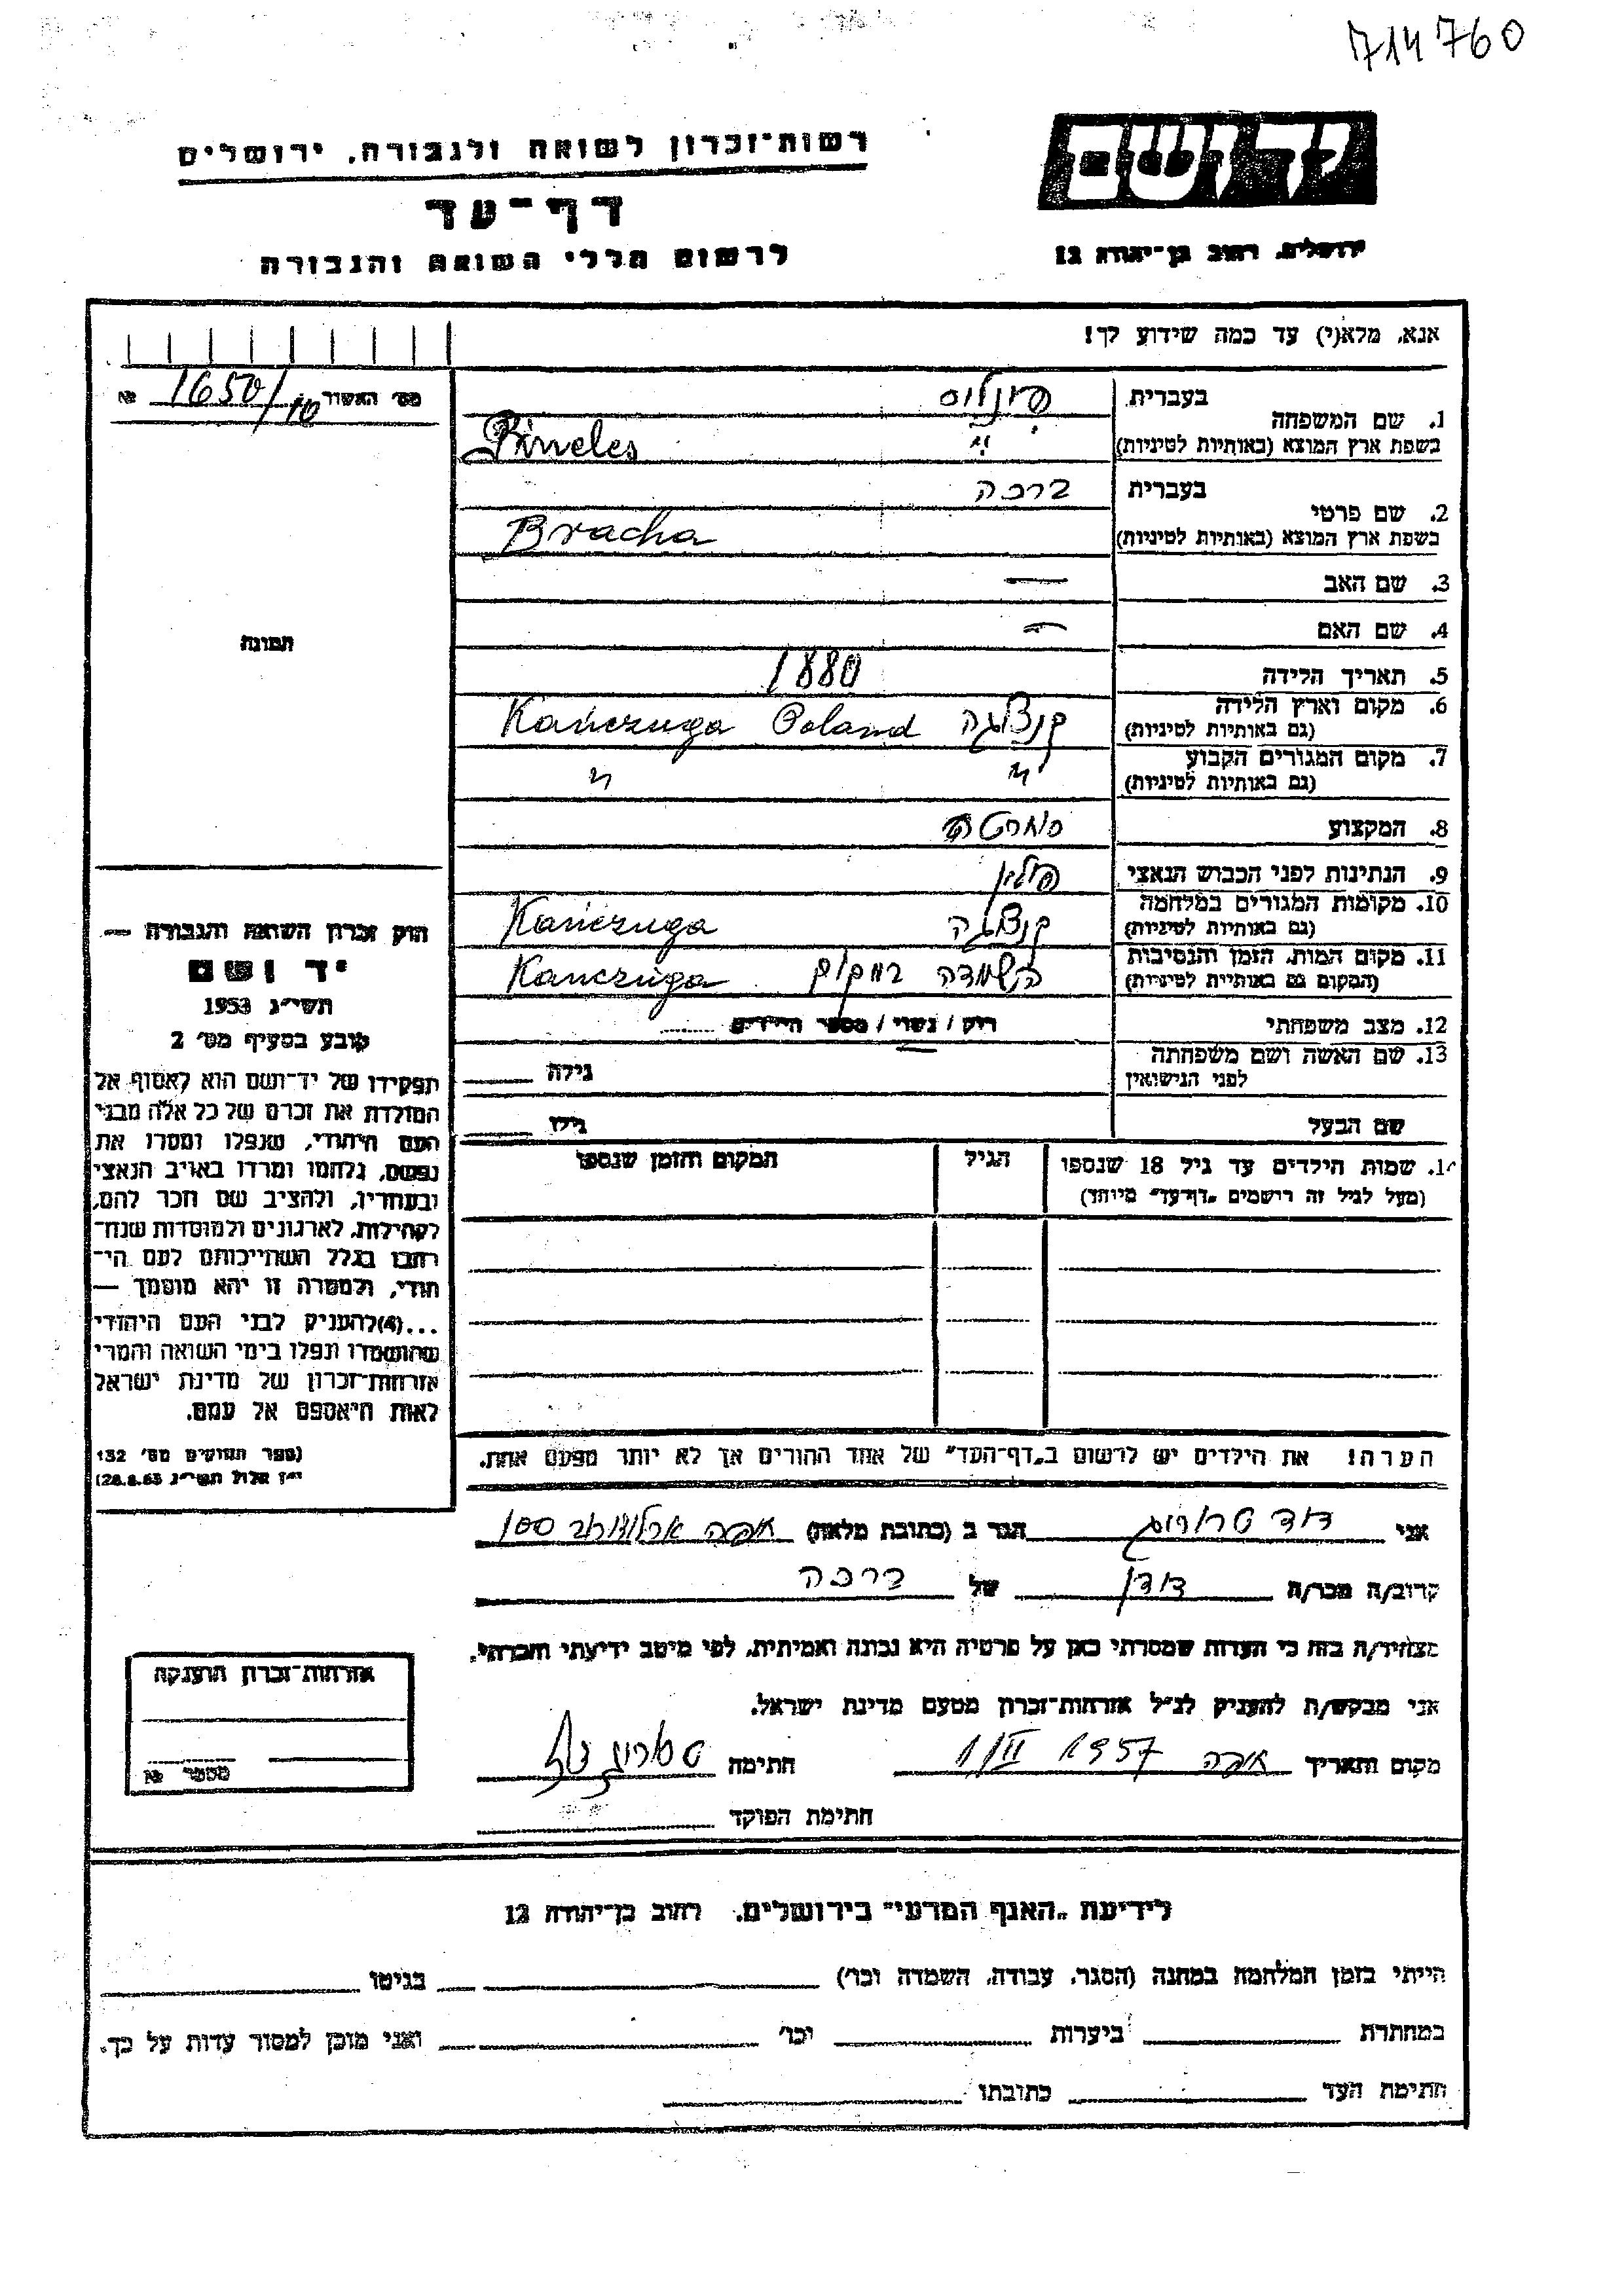 714760
יד ושם
ירושלים, רחוב בן־יהודה 12
רשות־זכרון לשואה ולגבורה, ירושלים
דף־עד
לרשום חללי השואה והגבורה
אנא, מלא(י) עד כמה שידוע לך!
מס׳ האשור 1650/10 №
תמונה
בעברית
1. שם המשפחה
בשפת ארץ המוצא (באותיות לטיניות) Pineles
2. שם פרטי
בעברית ברכה
בשפת ארץ המוצא (באותיות לטיניות) Bracha
3. שם האב —
4. שם האם —
5. תאריך הלידה 1880
6. מקום וארץ הלידה
(גם באותיות לטיניות) Kańczuga Poland
7. מקום המגורים הקבוע
(גם באותיות לטיניות) " "
8. המקצוע
9. הנתינות לפני הכבוש הנאצי פולין
10. מקומות המגורים במלחמה
(גם באותיות לטיניות) Kańczuga
11. מקום המות, הזמן והנסיבות
(המקום גם באותיות לטיניות) הושמדה במקום Kańczuga
12. מצב משפחתי רוק / נשוי / מספר הילדים
13. שם האשה ושם משפחתה
לפני הנישואין גילה
שם הבעל גילו
14. שמות הילדים עד גיל 18 שנספו
(מעל לגיל זה רישמים „דף־עד” מיוחד)
הגיל
המקום והזמן שנספו
הערה! את הילדים יש לרשום ב„דף־העד” של אחד ההורים אך לא יותר מפעם אחת.
חוק זכרון השואה והגבורה —
יד ושם
תשי״ג 1953
קובע בסעיף מס׳ 2
תפקידו של יד־ושם הוא לאסוף אל
המולדת את זכרם של כל אלה מבני
העם היהודי, שנפלו ומסרו את
נפשם, נלחמו ומרדו באויב הנאצי
ובעוזריו, ולהציב שם וזכר להם,
לקהילות, לארגונים ולמוסדות שנח־
רבו בגלל השתייכותם לעם הי־
הודי, ולמטרה זו יהא מוסמך —
...(4)להעניק לבני העם היהודי
שהושמדו ונפלו בימי השואה והמרי
אזרחות־זכרון של מדינת ישראל
לאות היאספם אל עמם.
(ספר החוקים מס׳ 132
י״ז אלול תשי״ג 28.8.53)
אני דוד הגר ב (כתובת מלאה) חיפה ארלוזורוב 100
קרוב/ה מכר/ה דודן של ברכה
מצהיר/ה בזה כי העדות שמסרתי כאן על פרטיה היא נכונה ואמיתית, לפי מיטב ידיעתי והכרתי.
אני מבקש/ת להעניק לנ״ל אזרחות־זכרון מטעם מדינת ישראל.
מקום ותאריך חיפה 1/II 1957 חתימה
חתימת הפוקד
אזרחות־זכרון הוענקה
מספר №
לידיעת „האגף המדעי” בירושלים, רחוב בן־יהודה 12
הייתי בזמן המלחמה במחנה (הסגר, עבודה, השמדה וכו׳) בגיטו
במחתרת ביערות וכו׳ ואני מוכן למסור עדות על כך.
חתימת העד כתובתו